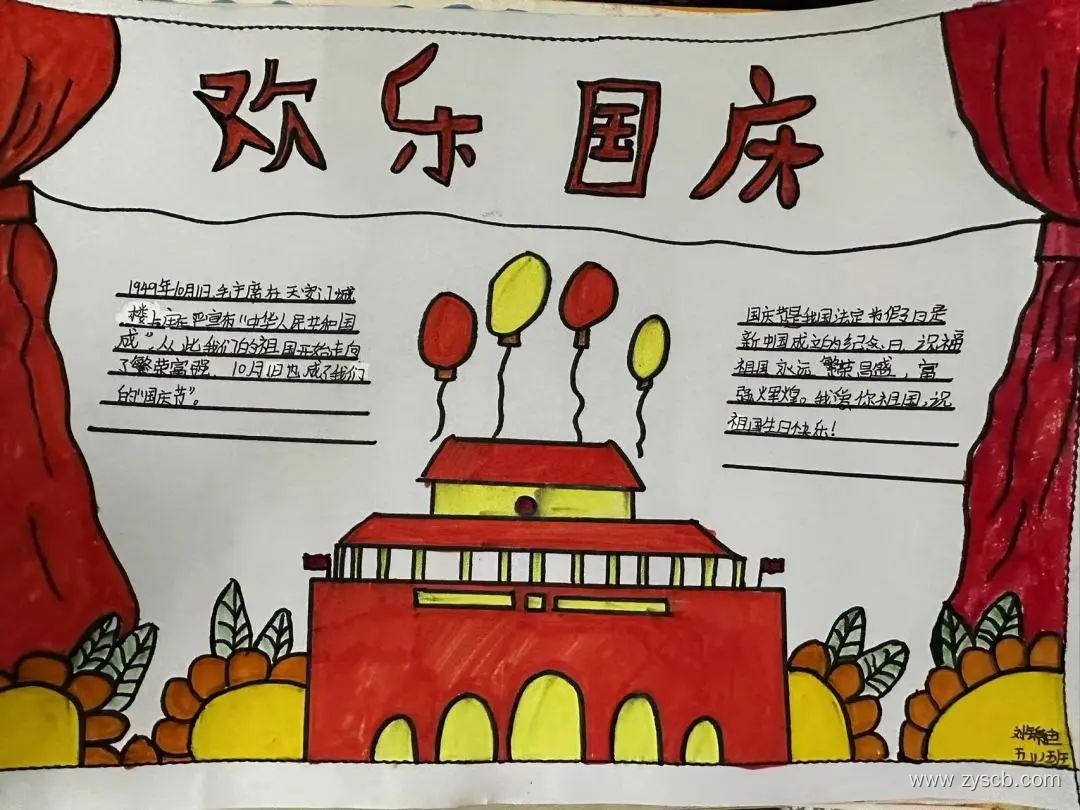 欢乐国庆
1949年10月1日毛主席在天安门城
楼上庄严宣布"中华人民共和国
成"从此我们的祖国开始走向
了繁荣富强 10月1日也成了我们
的"国庆节"。
国庆节是我国法定节假日是
新中国成立的纪念日,祝福
祖国永远繁荣昌盛,富
强辉煌。我爱你祖国,祝
祖国生日快乐!
www.zyscb.com